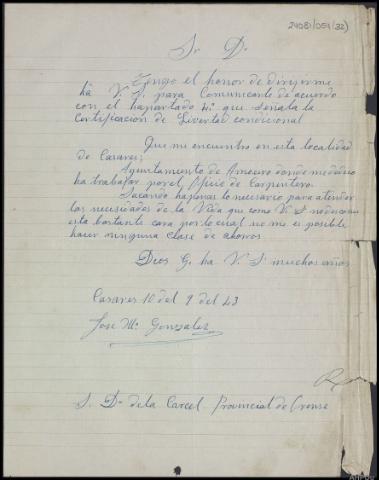 24081/054/32)
Sr. Dr
Tengo el honor de dirijirme
ha V. S. para Comunicarle de acuerdo
con el hapartado 4º que señala la
Certificasion de Livertad condicional
Que me encuentro en esta localidad
de Casares;
Ayuntamiento de Amoeiro donde me dedico
ha trabajar por el, Oficio de Carpintero.
Sacando hapenas lo necesario para atender
las necesidades de la Vida que como V. S.
esta bastante cara por lo cual no me es posible
hacer ninguna clase de ahorros
Dios G. ha V. S. muchos años
Casares 10 del 9 del 43
Jose Mª Gonzalez
S. Dr de la Carcel Provincial de Orense